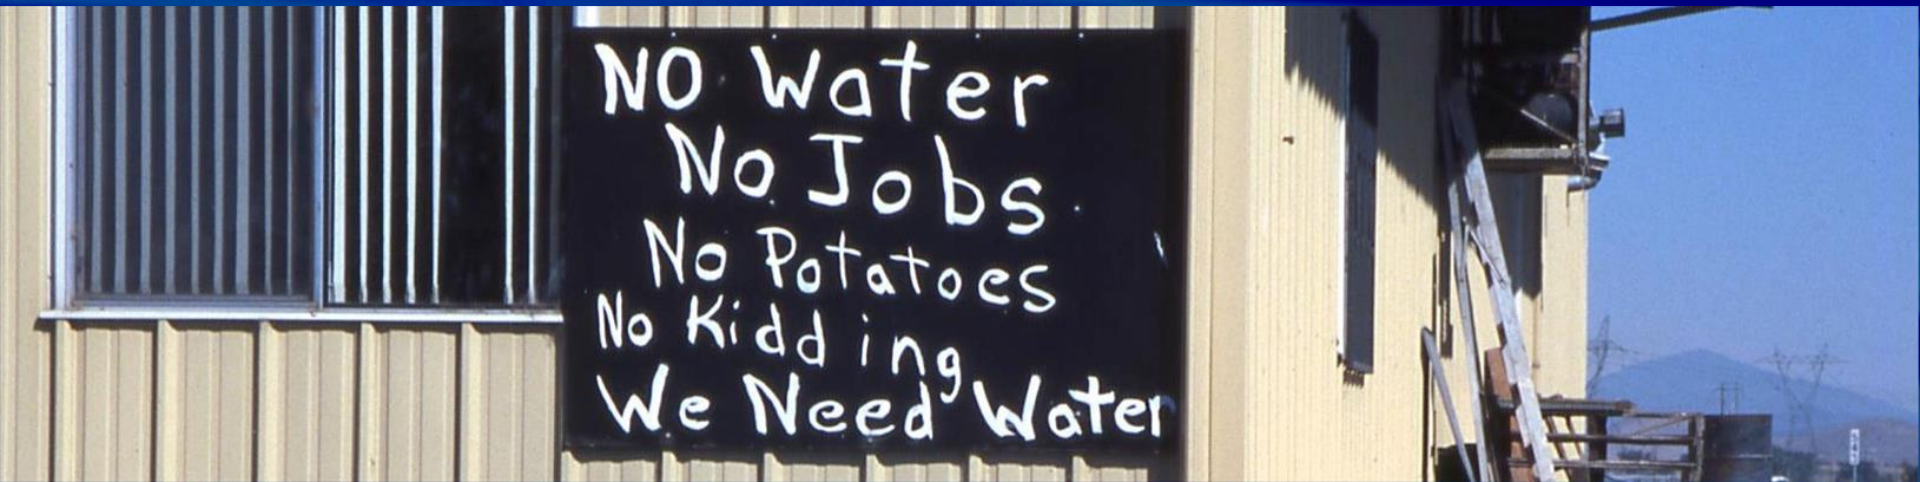 NO Water
No Jobs
No Potatoes
No Kidding
We Need Water